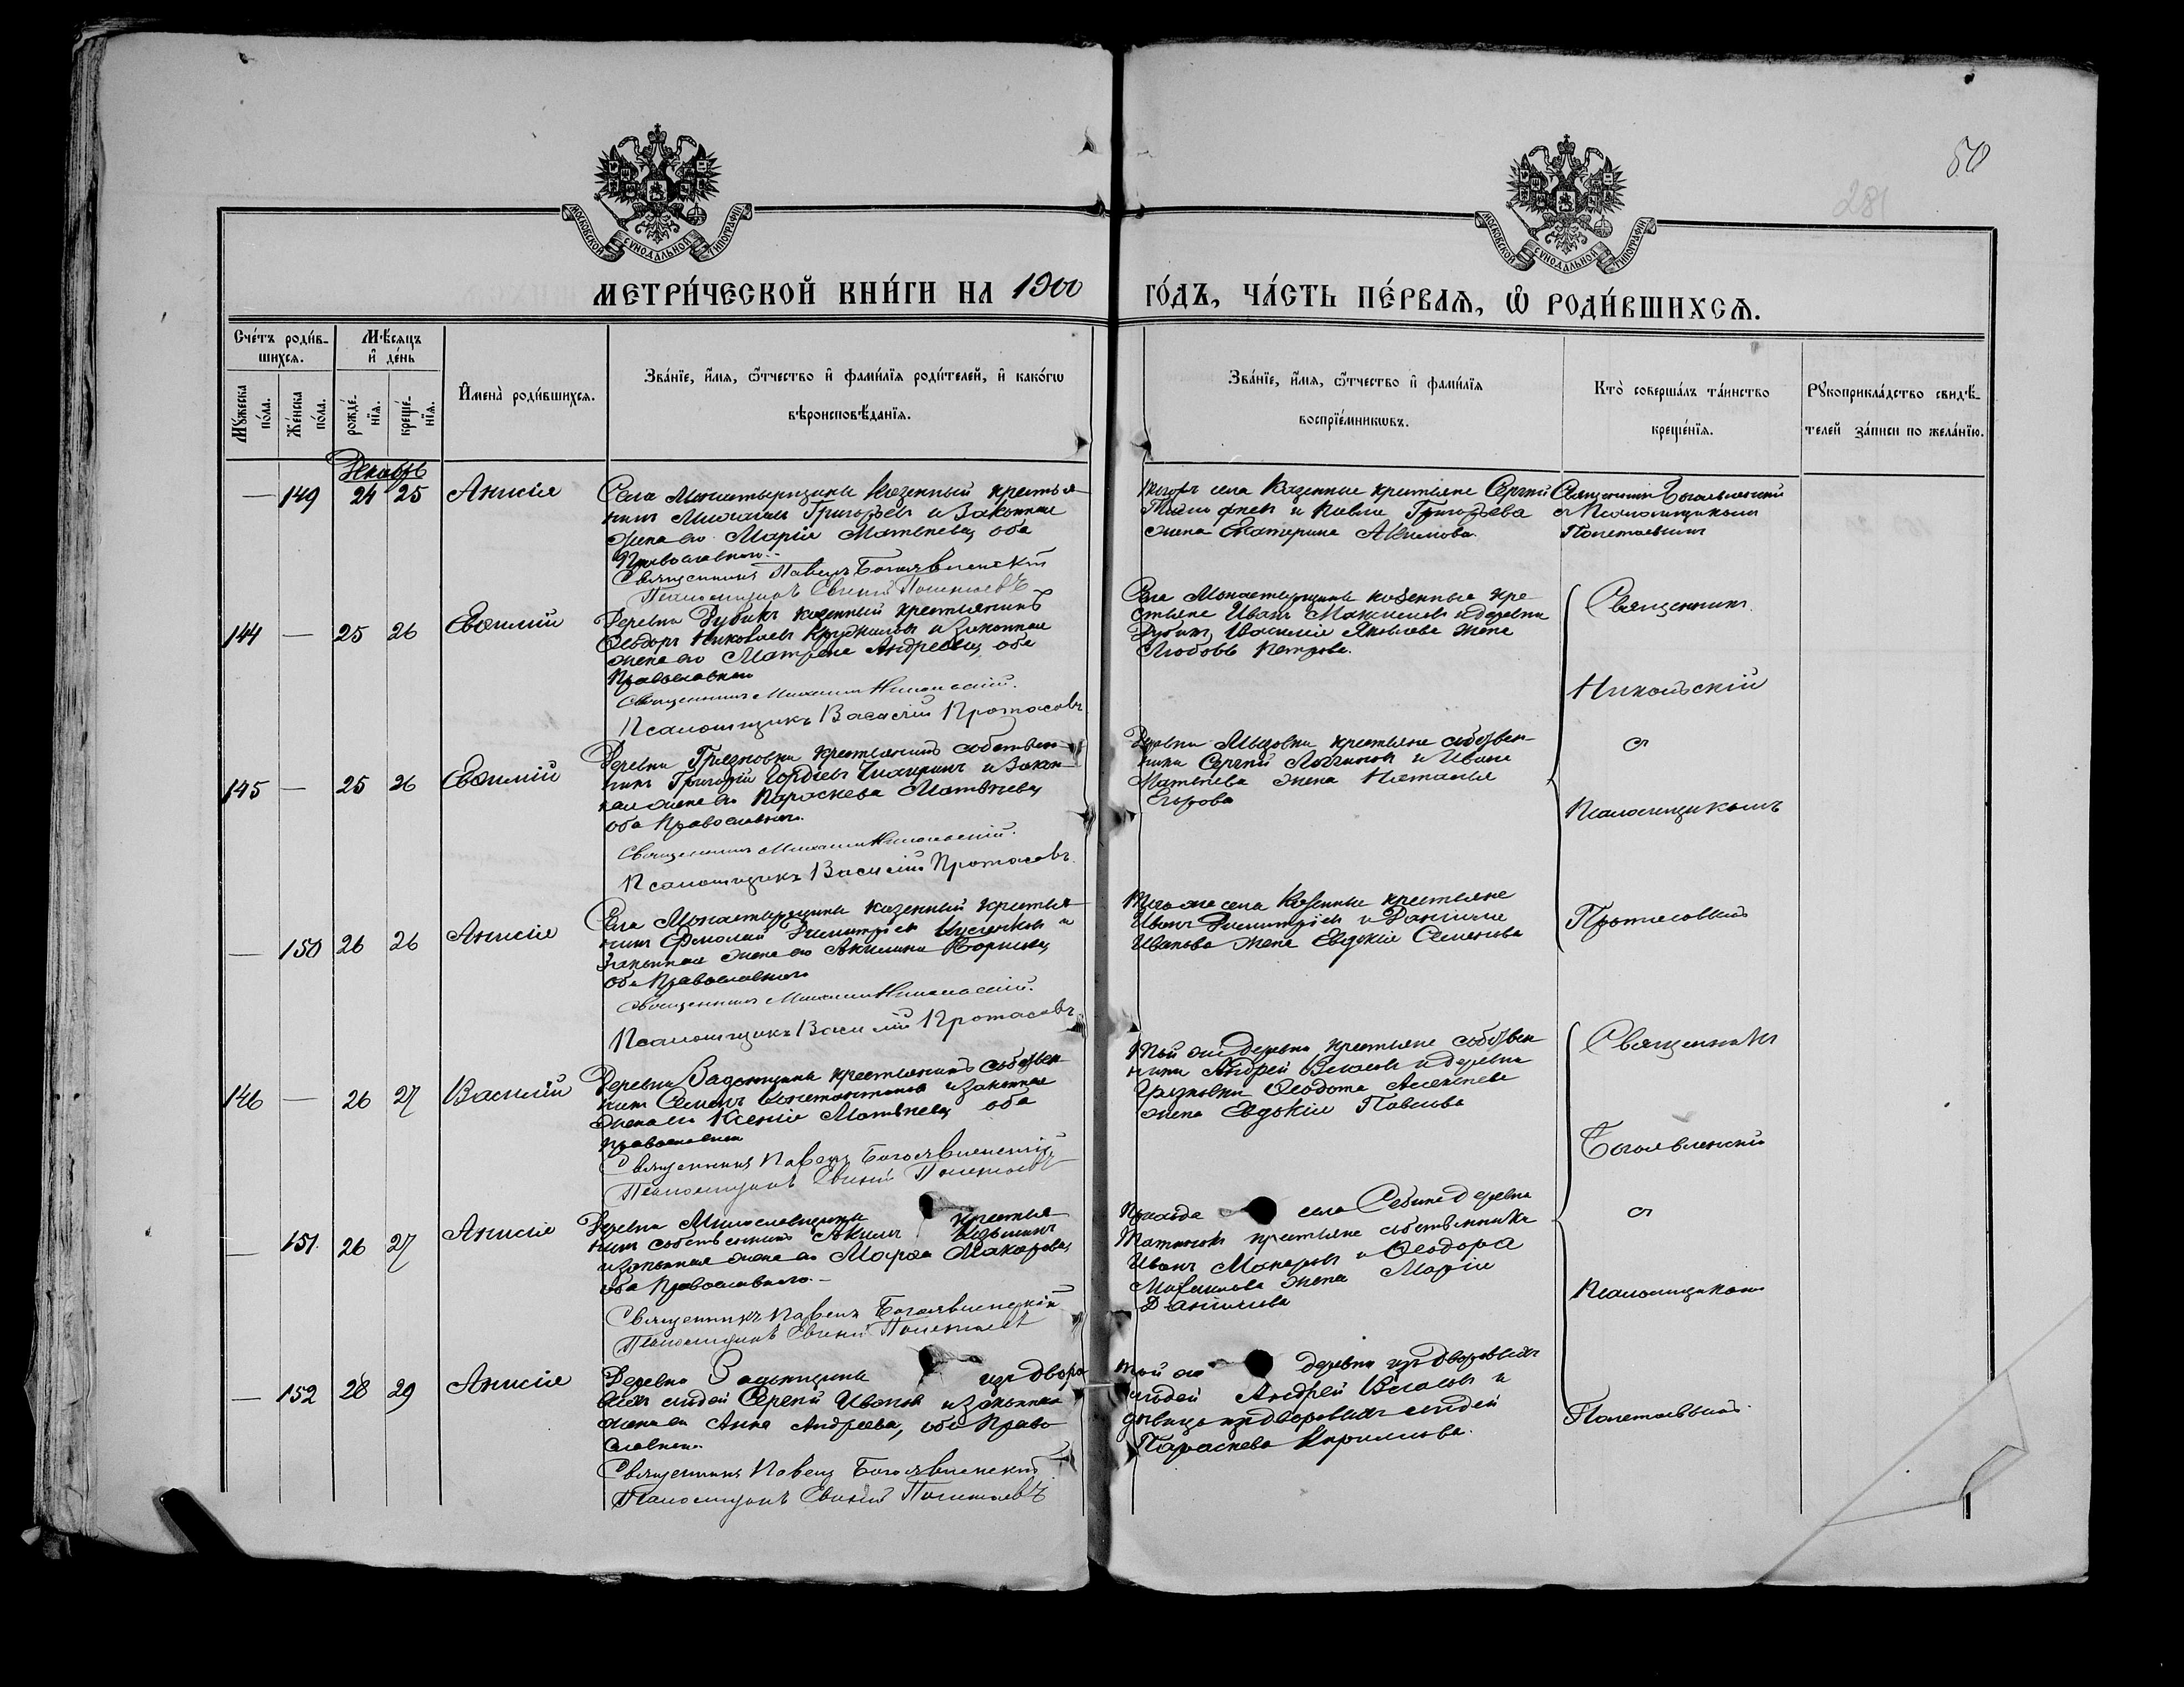 50
281
МОСКОВСКОЙ СУНОДАЛЬНОЙ ТИПОГРАФІИ
МОСКОВСКОЙ СУНОДАЛЬНОЙ ТИПОГРАФІИ
МЕТРИ́ЧЕСКОЙ КНИ́ГИ НА 1900
ГО́ДЪ, ЧА́СТЬ ПЕ́РВАѦ, Ѽ РОДИ́ВШИХСѦ.
Сче́тъ роди́в-
шихсѧ.
Мѣ́сѧцъ
и҆ де́нь
Мꙋ́жеска по́ла.
Же́нска по́ла.
рожде́нїѧ.
креще́нїѧ.
И҆мена̀ роди́вшихсѧ.
Зва́нїе, и҆́мѧ, ѻ҆́тчество и҆ фами́лїѧ роди́телей, и҆ како́гѡ
вѣроисповѣ́данїѧ.
Зва́нїе, и҆́мѧ, ѻ҆́тчество и҆ фами́лїѧ
воспрїе́мникѡвъ.
Кто̀ соверша́лъ та́инство
креще́нїѧ.
Рꙋкоприкла́дство свидѣ́-
телей за́писи по жела́нїю.
Декабрь
— 149 24 25 Анисія
Села Монастырщины Казенный крестья-
нинъ Григорьевъ и законная
жена его Марія Матвѣева, оба
Православнаго.
Священникъ Павелъ Богоявленскій
Псаломщикъ Полетаевъ
села Казенные крестьяне Сергій
и Григорьева
жена Екатерина Акимова.
Священникъ Богоявленскій
съ Псаломщикомъ
Полетаевымъ
144 — 25 26 Евѳимій
Деревни Дубикъ казенный крестьянинъ
Ѳеодоръ Николаевъ и законная
жена его Матрона Андреева, оба
Православнаго
Священникъ Михаилъ Никольскій.
Псаломщикъ Василій Протасовъ
Села Монастырщины казенные кре-
стьяне Иванъ Максимовъ и деревни
Дубикъ Яковлева жена
Любовь Петрова.
Священникъ
Никольскій
съ
Псаломщикомъ
Протасовымъ
145 — 25 26 Евѳимій
Деревни Грязновки крестьянинъ собствен-
никъ Григорій Гордѣевъ и закон-
ная жена его Параскева Матвѣева,
оба Православнаго.
Священникъ Михаилъ Никольскій.
Псаломщикъ Василій Протасовъ.
Деревни крестьяне собствен-
ники Сергій и Ивана
Матвѣева жена Наталья
Егорова
— 150 26 26 Анисія
Села Монастырщины казенный крестья-
нинъ Димитріевъ и
законная жена его Акилина
оба Православнаго
Священникъ Михаилъ Никольскій.
Псаломщикъ Василій Протасовъ
Того же села Казенные крестьяне
Иванъ Димитріевъ и Даніила
Иванова жена Евдокія Семенова
146 — 26 27 Василій
Деревни Задонщины крестьянинъ собствен-
никъ Семенъ Константиновъ и законная
жена его Ксенія Матвѣева, оба
православнаго
Священникъ Павелъ Богоявленскій
Псаломщикъ Полетаевъ
Той же деревни крестьяне собствен-
ники Андрей Власовъ и деревни
Грязновки Ѳеодота Алексѣева
жена Евдокія Павлова
Священникъ
Богоявленскій
съ
Псаломщикомъ
Полетаевымъ.
— 151 26 27 Анисія
Деревни Милославщины крестья-
нинъ собственникъ Акимъ Кузьминъ
и законная жена его Марѳа Макарова,
оба Православнаго.—
Священникъ Павелъ Богоявленскій
Псаломщикъ Полетаевъ
Прихода села Себина деревни
Татинокъ крестьяне собственники
Иванъ Макаровъ и Ѳеодора
жена Марія
Даніилова
— 152 28 29 Анисія
Деревни Задонщины изъ дворо-
выхъ людей Сергій Ивановъ и законная
жена его Анна Андреева, оба Право-
славнаго.
Священникъ Павелъ Богоявленскій
Псаломщикъ Полетаевъ
Той же деревни изъ дворовыхъ
людей Андрей Власовъ и
дѣвица изъ дворовыхъ людей
Параскева Кирилова.